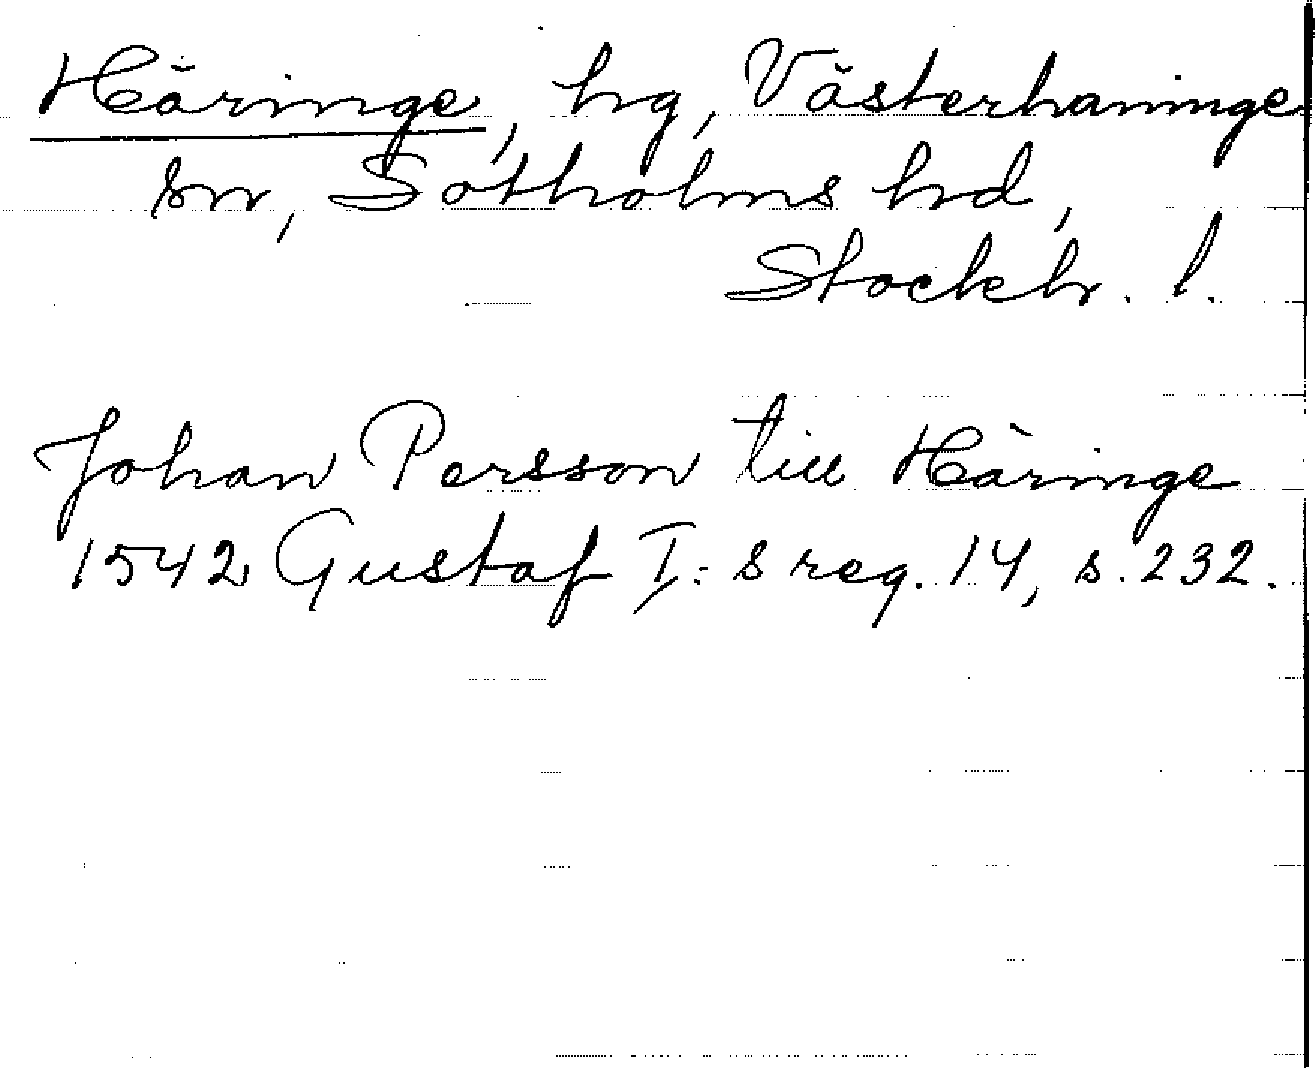 Häringe, hg, Västerhaninge
sn, Sotholms hd,
Stockh. l.
Johan Persson till Häringe
1542 Gustaf I:s reg. 14, s. 232.